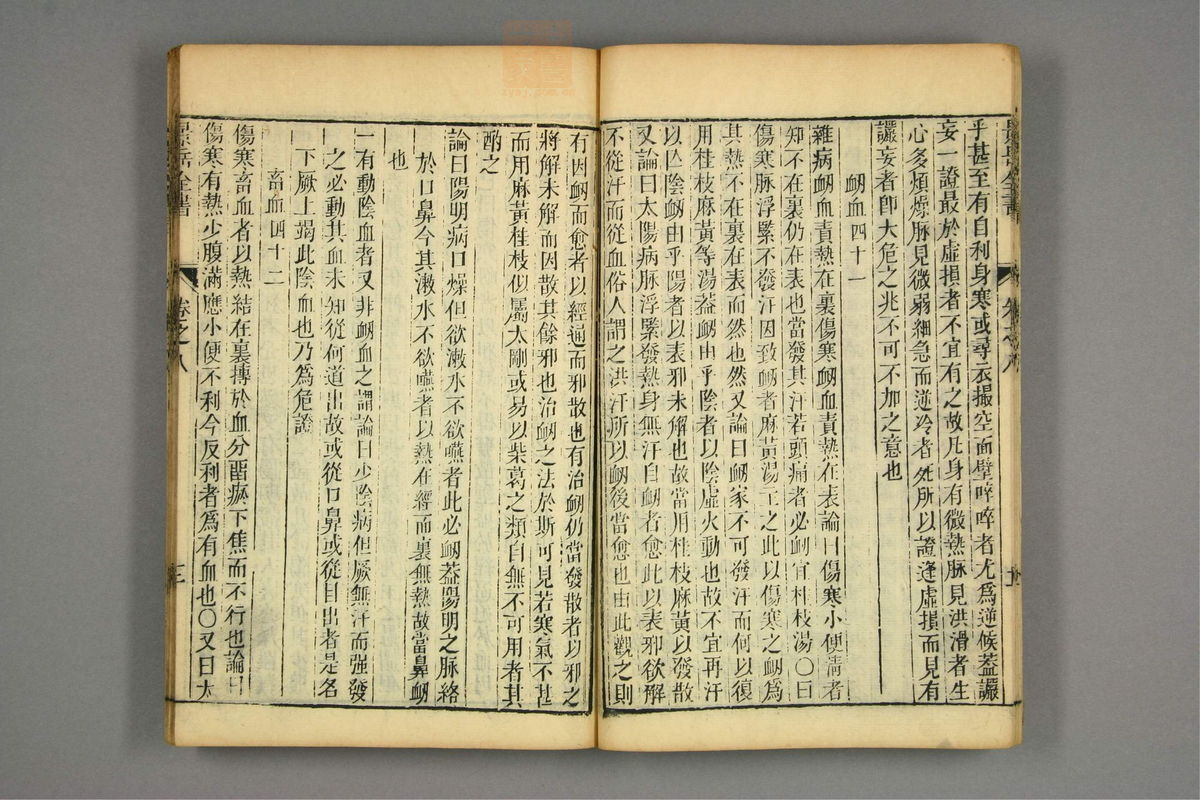 乎甚至有自利身寒或尋衣撮空面壁啐啐者尤為逆候蓋讝
妄一證最於虛損者不宜有之故凡身有微熱脉見洪滑者生
心多煩燥脉見微弱細急而逆冷者死所以證逢虛損而見有
讝妄者卽大危之兆不可不加之意也
衂血四十一
雜病衂血責熱在裏傷寒衂血責熱在表論曰傷寒小便淸者
知不在裏仍在表也當發其汗若頭痛者必衂宜桂枝湯〇曰
傷寒脉浮緊不發汗因致衂者麻黃湯主之此以傷寒之衂為
其熱不在裏在表而然也然又論曰衂家不可發汗而何以復
用桂枝麻黃等湯蓋衂由乎陰者以陰虛火動也故不宜再汗
以亡陰衂由乎陽者以表邪未解也故當用桂枝麻黃以發散
又論曰太陽病脉浮緊發熱身無汗自衂者愈此以表邪欲解
不從汗而從血俗人謂之洪汗所以衂後當愈也由此觀之則
有因衂而愈者以經通而邪散也有治衂仍當發散者以邪之
將解未解而因散其餘邪也治衂之法於斯可見若寒氣不甚
而用麻黃桂枝似屬太剛或易以柴葛之類自無不可用者其
酌之
論曰陽明病口燥但欲漱水不欲嚥者此必衂蓋陽明之脉絡
於口鼻今其漱水不欲嚥者以熱在經而裏無熱故當鼻衂
也
一有動陰血者又非衂血之謂論曰少陰病但厥無汗而强發
之必動其血未知從何道出故或從口鼻或從目出者是名
下厥上竭此陰血也乃為危證
畜血四十二
傷寒畜血者以熱結在裏搏於血分畱瘀下焦而不行也論曰
傷寒有熱少腹滿應小便不利今反利者為有血也〇又曰太
景岳全書
卷之八